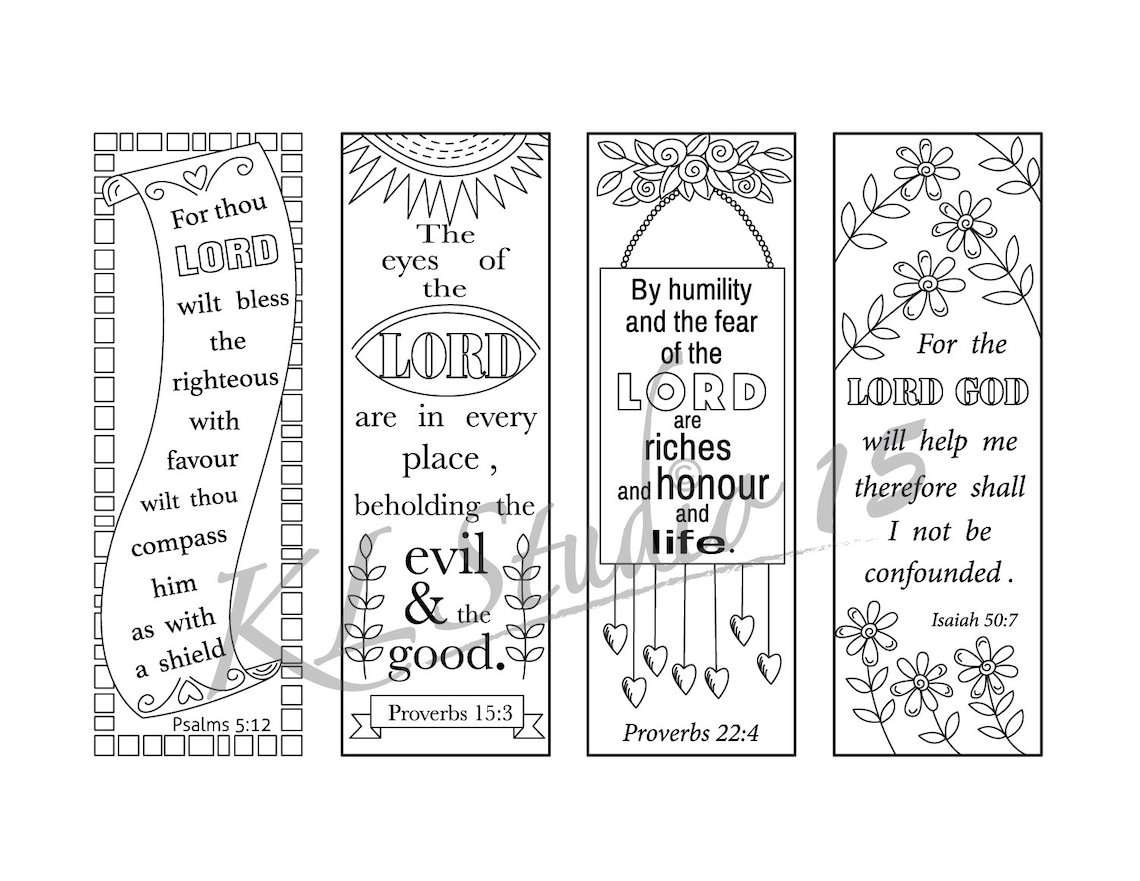 For thou
LORD
wilt bless
the
righteous
with
favour
wilt thou
compass
him
as with
a shield
Psalms 5:12
The
eyes of
the
LORD
are in every
place ,
beholding the
evil
& the
good.
Proverbs 15:3
By humility
and the fear
of the
LORD
are
riches
and honour
and
life.
Proverbs 22:4
For the
LORD GOD
will help me
therefore shall
I not be
confounded .
Isaiah 50:7
KL Studio 15
©